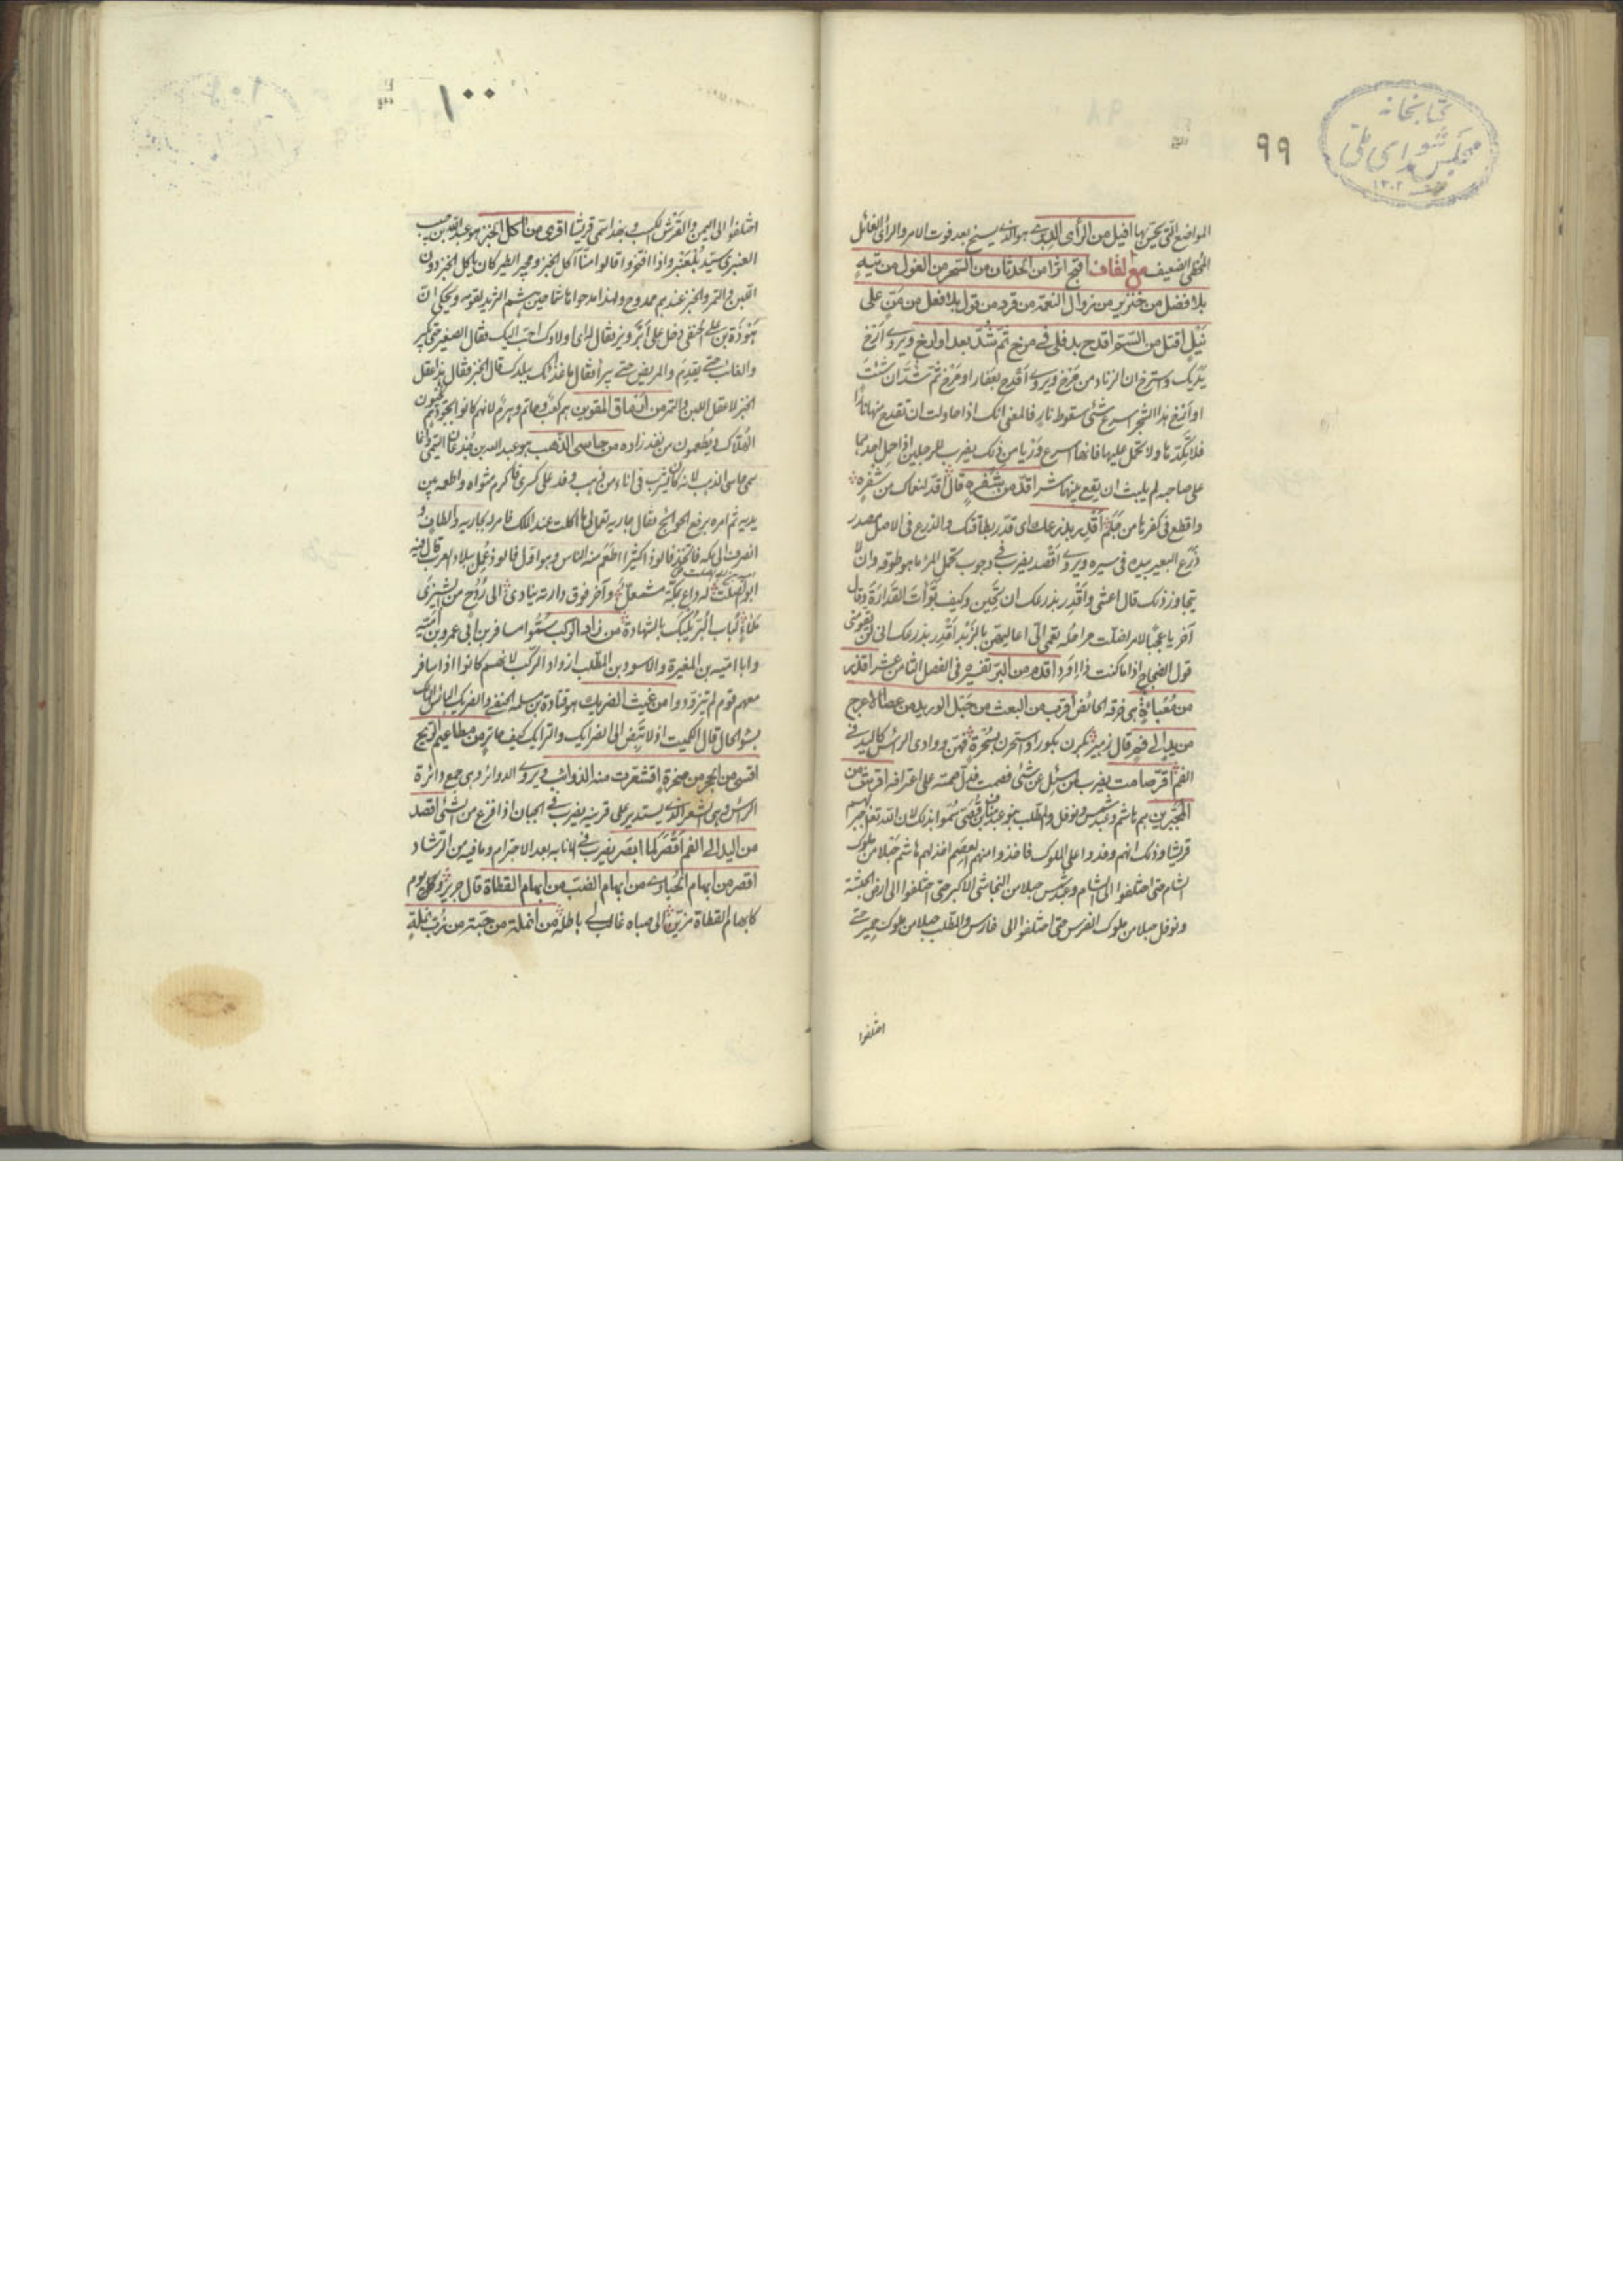 كتابخانه
مجلس شوراى ملى
١٣٠٢
٩٩
المواضع التى يحسن بها افيل من الرأى الدبرى هو الذى يسنح بعد فوت الامر والرأى الفائل
المخطى الضعيف مع لقاف اقبح اثرا من الحدثان من السحر من الغول من تيه
بلا فضل من خنزير من زوال النعمة من قرد من قول بلا فعل من مَنّ على
نَيْل اقتل من السّم اقدح بدفلى فى مرخ ثم شدّ بعد او ارخ ويروى اَرْخ
يَدَيك واسترخ ان الزناد من مَرْخ ويروى اقدح بعفار او مَرْخ ثم شُدَّ ان شئت
او اَرْخ هذا الشجر اسرع شئ سقوط نار فالمعنى انك اذا حاولت ان تقدح منها نارا
فلا تكدّها ولا تحمل عليها فانها اسرع وَرْيا من ذلك يضرب للرجلين اذا حمل احدهما
على صاحبه لم يلبث ان يقع بينهما شر اقدّ من شفرة قال اقدّ لنعماك من شفرة
واقطع فى كفرها من جَلَم اَقْدِر بذرعك اى قدر بطاقتك والذرع فى الاصل مصدر
ذَرَع البعير بيده فى سيره ويروى اَقْصد يضرب فى وجوب تحمل المرء ما هو طوقه وان لا
يتجاوز ذلك قال اعشى واَقْدِر بذرعك ان تَحين وكيف بَوّأت القدارة وقال
آخر يا عجبًا لامر اَقْدِر بذرعك انى لن يقومنى
قول الضجاج اذا ما كنت ذا اَوَد اقدم من البرّ تفسيره فى الفصل الثامن عشر اقذر
من مَعْبأة هى خرقة الحائض اقرب من البعث من حَبل الوريد من عصا الاعرج
من يد الى فم قال زهير بكرن بكورا واستحرن بسُحْرة فهنّ ووادى الرسّ كاليد فى
الفم اقرّ صامت يضرب لمن سئل عن شئ فصمت اعترافه اقرش من
المجَبّرين هم هاشم وعبد شمس ونوفل والمطلب بنو عبد مناف بن قُصَىّ سمّوا بذلك لان الله تعالى جبر بهم
قريشا وذلك انهم وفدوا على الملوك فاخذوا منهم العصم اخذ لهم هاشم حَبلا من ملوك
الشام حتى اختلفوا الى الشام وعبد شمس حبلا من النجاشى الاكبر حتى اختلفوا الى ارض الحبشة
ونوفل حبلا من ملوك الفرس حتى اختلفوا الى فارس والمطلب حبلا من ملوك حِمير حتى
اختلفوا
١٠٠
اختلفوا الى اليمن والقَرْش الكسب و سمى قريشا اقرى من آكل الخبز هو عبد الله بن حبيب
العنبرى سيّد بَلْعَنْبَر واذا افتخروا قالوا منّا آكل الخبز ومجير الطير كان ياكل الخبز دون
اللبن والتمر والخبز عندهم ممدوح ولهذا مدحوا هاشما حين هشم الثريد لقومه ويحكى ان
هَوْذَة بن على الحنفى دخل على اَبَرْويز فقال له اى اولادك احبّ اليك فقال الصغير حتى يكبر
والغائب حتى يقدم والمريض حتى يبرأ فقال ما غذاؤك ببلدك قال الخبز فقال هذا عقل
الخبز لا عقل اللبن والتمر من ارماق المقوين هم كعب وحاتم وهرم لانهم كانوا
الهُلّاك ويُطعمون من نفد زاده من حاسى الذهب هو عبد الله بن جُدعان التيمى وانما
سمى حاسى الذهب لانه كان يشرب فى اناء من ذهب وفد على كسرى فاكرم مثواه واطعمه بين
يديه ثم امره برفع الحوائج فقال جارية تعمل لى ما اكلت عند الملك فامر له بجارية والطاف و
انصرف الى مكة فاتخذ فالوذا كثيرا اطعم منه الناس وهو اول فالوذ عُمِل ببلاد العرب قال فيه
ابو الصلت له داع بمكة مشمعلّ وآخر فوق دارته ينادى الى رُدُح من الشِيزَى
مِلاءٌ لُباب البُرّ يُلبك بالشهاد من زاد الركب سُمّوا مسافر بن ابى عمرو بن اُميّة
وابا اميّة بن المغيرة والاسود بن المطلب ازواد الركب لانهم كانوا اذا سافر
معهم قوم لم يتزودوا من غيث الضريك هو قتادة بن مسلمة الحنفى والضريك البائس الهالك
بسوء الحال قال الكميت اذ لا تَبِضّ الى الضرايك والترايك كيف حاتر من مطاعيم الريح
اقسى من الحجر من صخرة اقشعرت منه الذوائب ويروى الدوائر وهى جمع دائرة
الرأس وهى الشعر الذى يستدير على قرنه يضرب فى الجبان اذا فزع من الشئ اقصد
من اليد الى الفم اَقْصَر لمّا ابصر يضرب فى الانابة بعد الاجترام وما فيه من الرّشاد
اقصر من ابهام الحُبارى من ابهام الضبّ من ابهام القطاة قال جرير ويوم
كابهام القطاة مزيّن الى صباه غالب لى باطله من انملة من حَبّة من زُبّ نملة